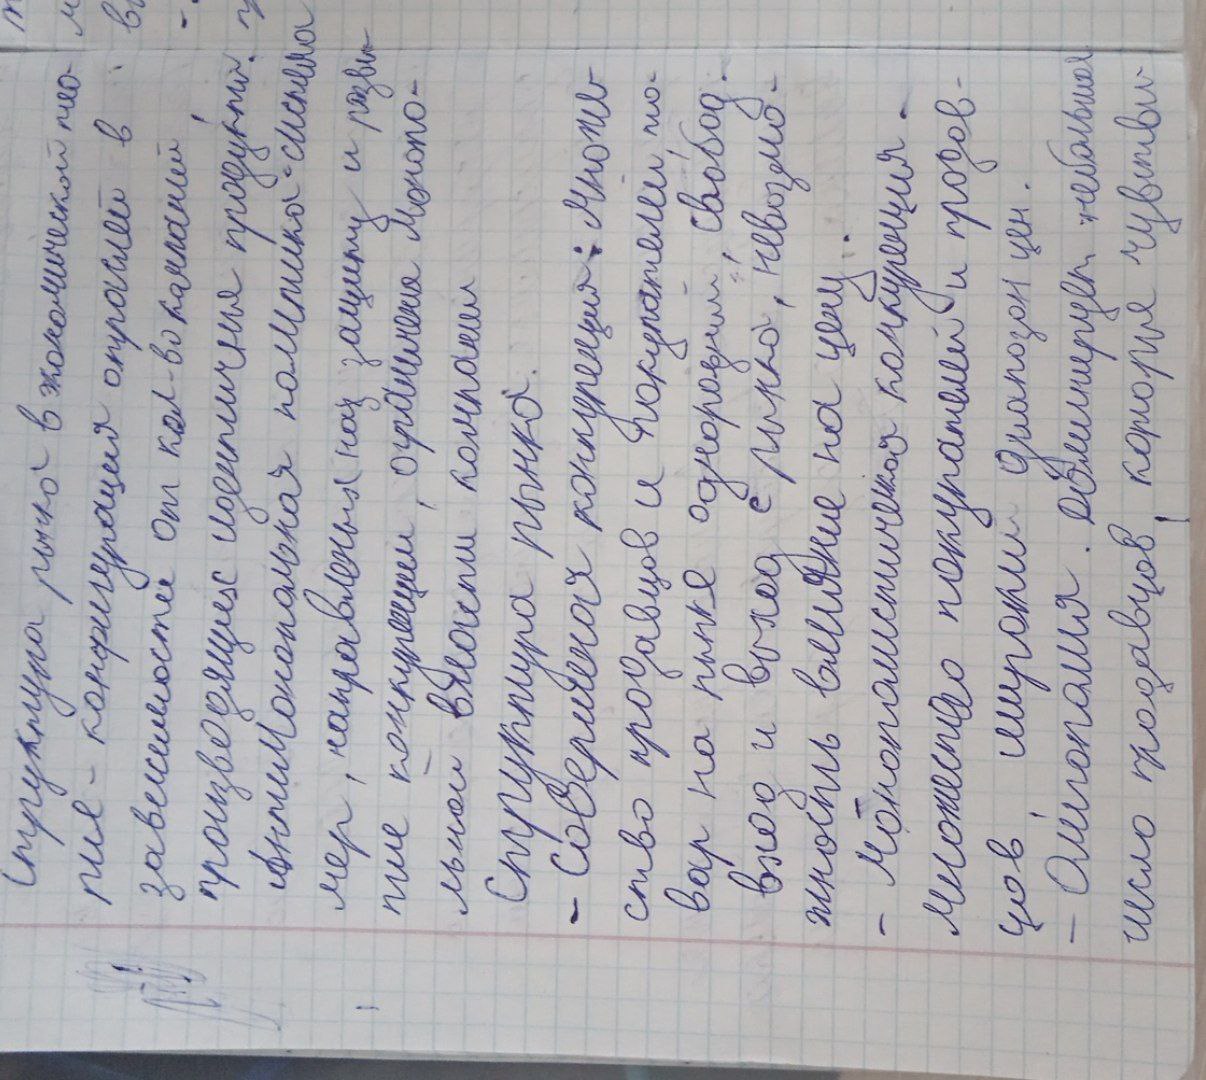 Структура рынка в экономической тео-
рие - конфигурация отраслей в
зависимости от кол-во компаний
производящих идентичные продукты.
Антимонопольная политика - система
мер, направленых на защиту и разви-
тие конкуренции, ограничение монопо-
льной власти компании
Структура рынка.
- Совершеная конкуренция: Множе-
ство продавцов и покупателей, то-
вар на рынке однородный, свобод.
вход и выход с рынка, невозмо-
жность влияние на цену.
- Монополистическая конкуренция -
множество покупателей и продов-
цов широкий диапозон цен.
- Олигополия. небольшое
число продавцов, которые чувстви